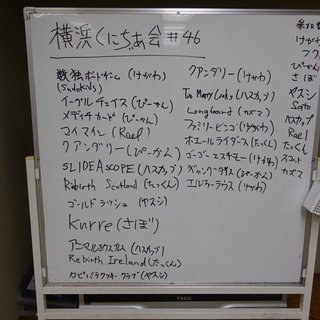 横浜くにちあ会#46
数独ボードゲーム (けがわ)
(Sudokids)
イーグルチェイス (ぴーかん)
メディチカード (ぴーかん)
マイマイン (Rael)
クアンダリー (ぴーかん)
SLIDEASCOPE (ハスカップ)
Rebirth Scotland (たっくん)
ゴールドラッシュ (ヤスシ)
Kurre (さぼ)
アニマルオクスカス (ハスカップ)
Rebirth Ireland (たっくん)
カピバラクッキークラブ (ヤスシ)
クアンダリー (けがわ)
Too Many Cooks (ハスカップ)
Longboard (カズマ)
ファミリービンゴ (けがわ)
ホエールライダース (たっくん)
ゴーゴーエスキモー (けがわ)
(ぴーかん)
エルフ―ラウス (けがわ)
けがわ
フク
ぴーかん
さぼ
ヤスシ
Soto
ハスカップ
Rael
たっくん
スコット
カズマ
TECO